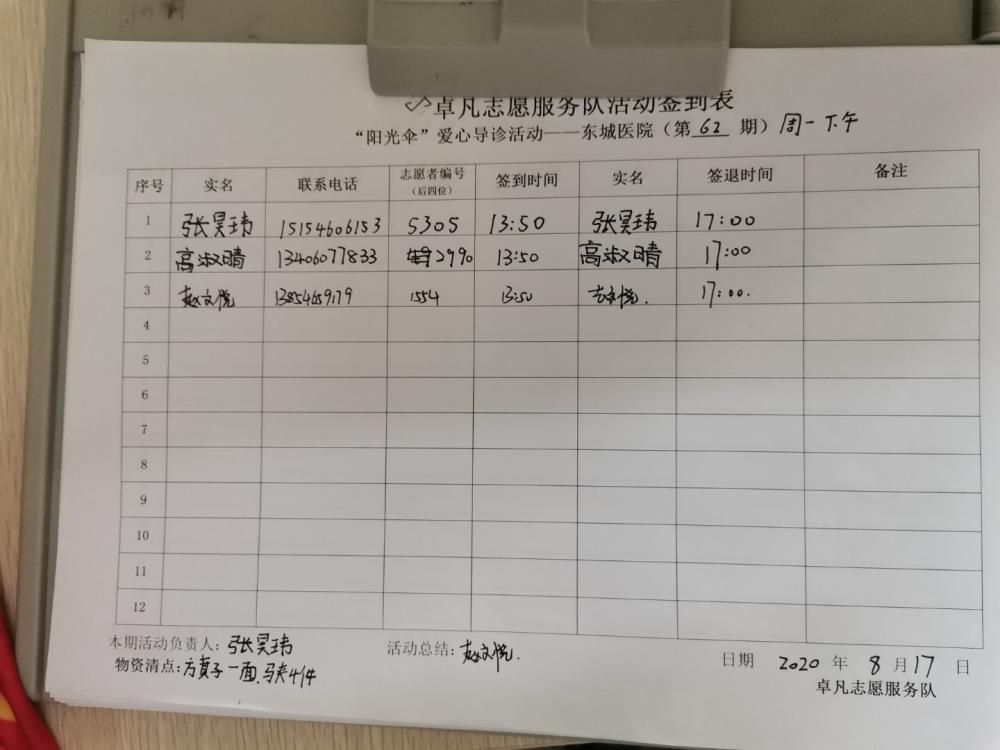 卓凡志愿服务队活动签到表
“阳光伞”爱心导诊活动——东城医院（第 62 期）周一下午
序号 实名 联系电话 志愿者编号（后四位） 签到时间 实名 签退时间 备注
1 张昊玮 15154606153 5305 13:50 张昊玮 17:00
2 高淑晴 13406077833 2990 13:50 高淑晴 17:00
3 赵文悦 13854659179 1554 13:50 赵文悦. 17:00.
4
5
6
7
8
9
10
11
12
本期活动负责人：张昊玮 活动总结：赵文悦. 日期 2020 年 8 月 17 日
物资清点：一面、马夹4件
卓凡志愿服务队